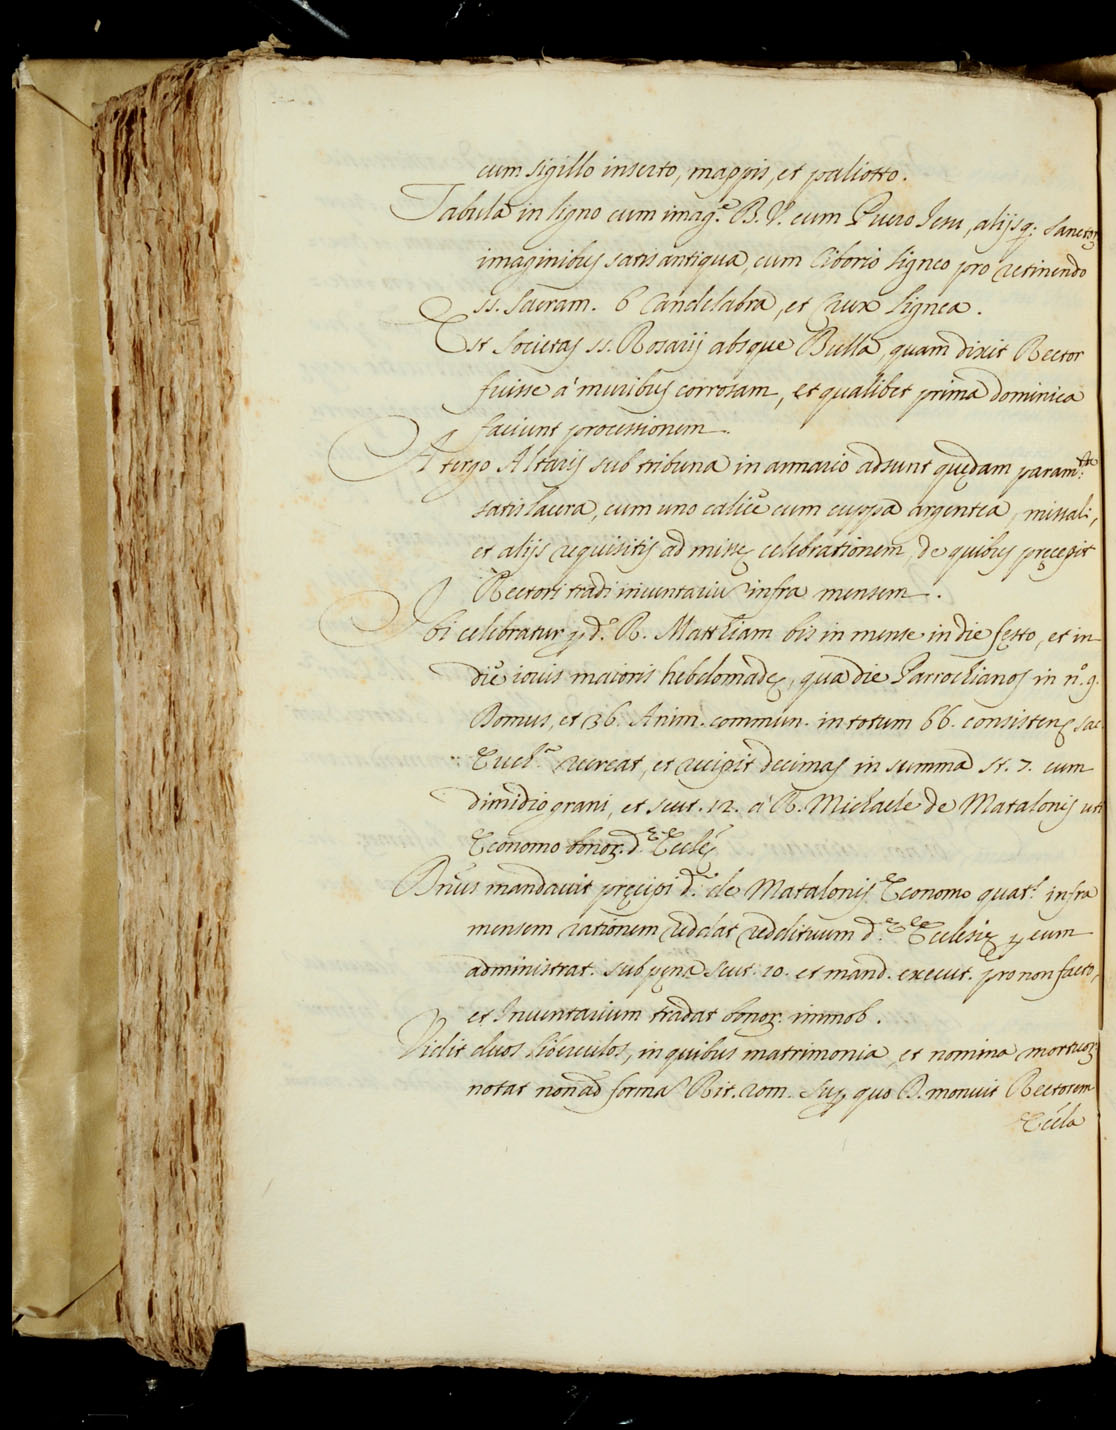 cum sigillo inserto, mappis, et paliotto.
Tabula in ligno cum imag.e B. V. cum Puero Jesu, alijsq; sanctor
imaginibus satis antiqua, cum Ciborio ligneo pro retinendo
ss. Sacram. 6 Candelabra, et Crux lignea.
Est Societas ss. Rosarij absque Bulla, quam dixit Rector
fuisse à muribus corrosam, et qualibet prima dominica
faciunt processionem.
A tergo Altaris sub tribuna in armario adsunt quędam param.ta
satis lacera, cum uno calicē cum cuppa argentea, missali,
et alijs requisitis ad missę celebrationem, de quibus pręcepit
Rectori tradi inventariū infra mensem.
Ibi celebratur p d.o R. Matthiam bis in mense in die festo, et in
diē iovis maioris hebdomadę, qua die Parrochianos in n.o 9.
Domus, et 36. Anim. commun. in totum 66. consistenę sac.
recreat, et recipit decimas in summa st. 7. cum
dimidio grani, et scut. 12. à R. Michaele de Matalonis uti
Economo bonoʒ. d.ę Ecclę
Dnus mandavit pręcipi d.o de Matalonis Economo quat.s infra
mensem rationem reddat reddituum d.ę Ecclesię p eum
administrat. sub pęna scut. 10. et mand. execut. pro non facto,
et Inventarium tradat bonoʒ. immob.
Vidit duos libriculos, in quibus matrimonia, et nomina mortuoʒ
notat non ad formā Rit. rom. Sup quo D. monuit Rectorem
Eccla